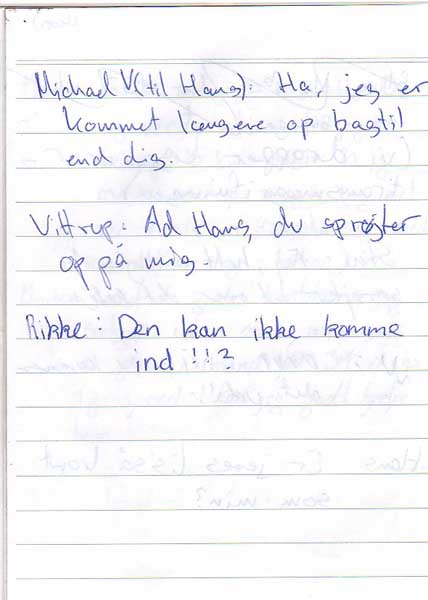 Michael V (til Hans): Ha, jeg er
kommet længere op bagtil
end dig.
Vittrup: Ad Hans, du sprøjter
op på mig.
Rikke: Den kan ikke komme
ind !!?